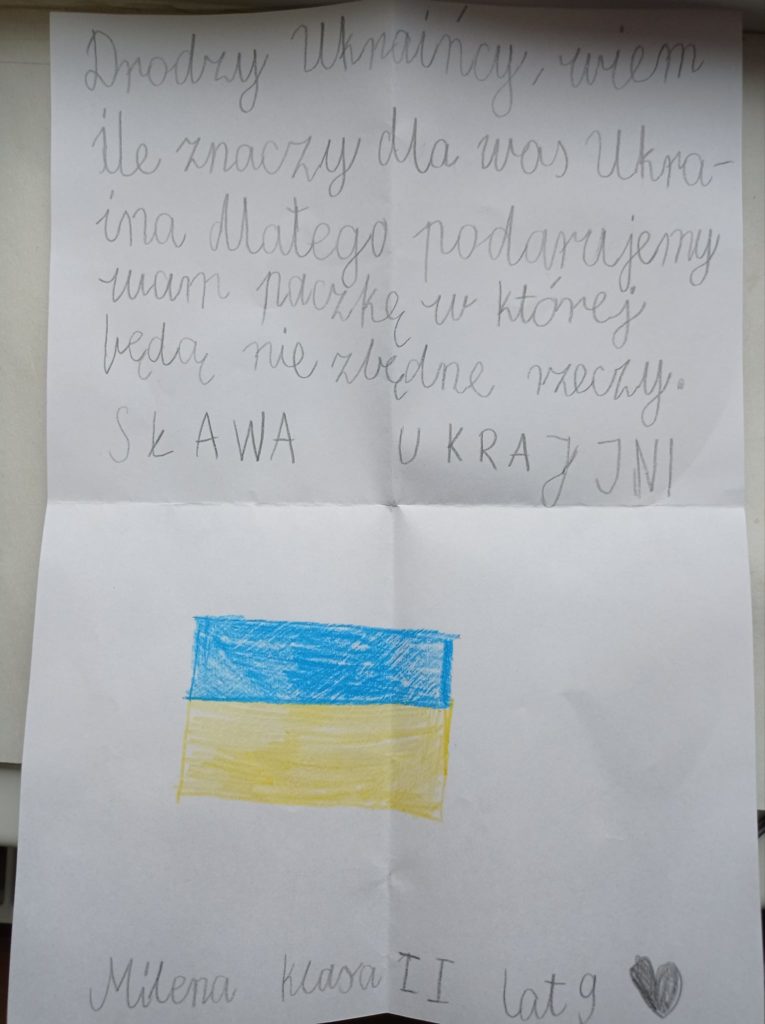 Drodzy Ukraińcy, wiem
ile znaczy dla was Ukra-
ina dlatego podarujemy
wam paczkę w której
będą nie zbędne rzeczy.
SŁAWA UKRAJINI
Milena klasa II lat 9